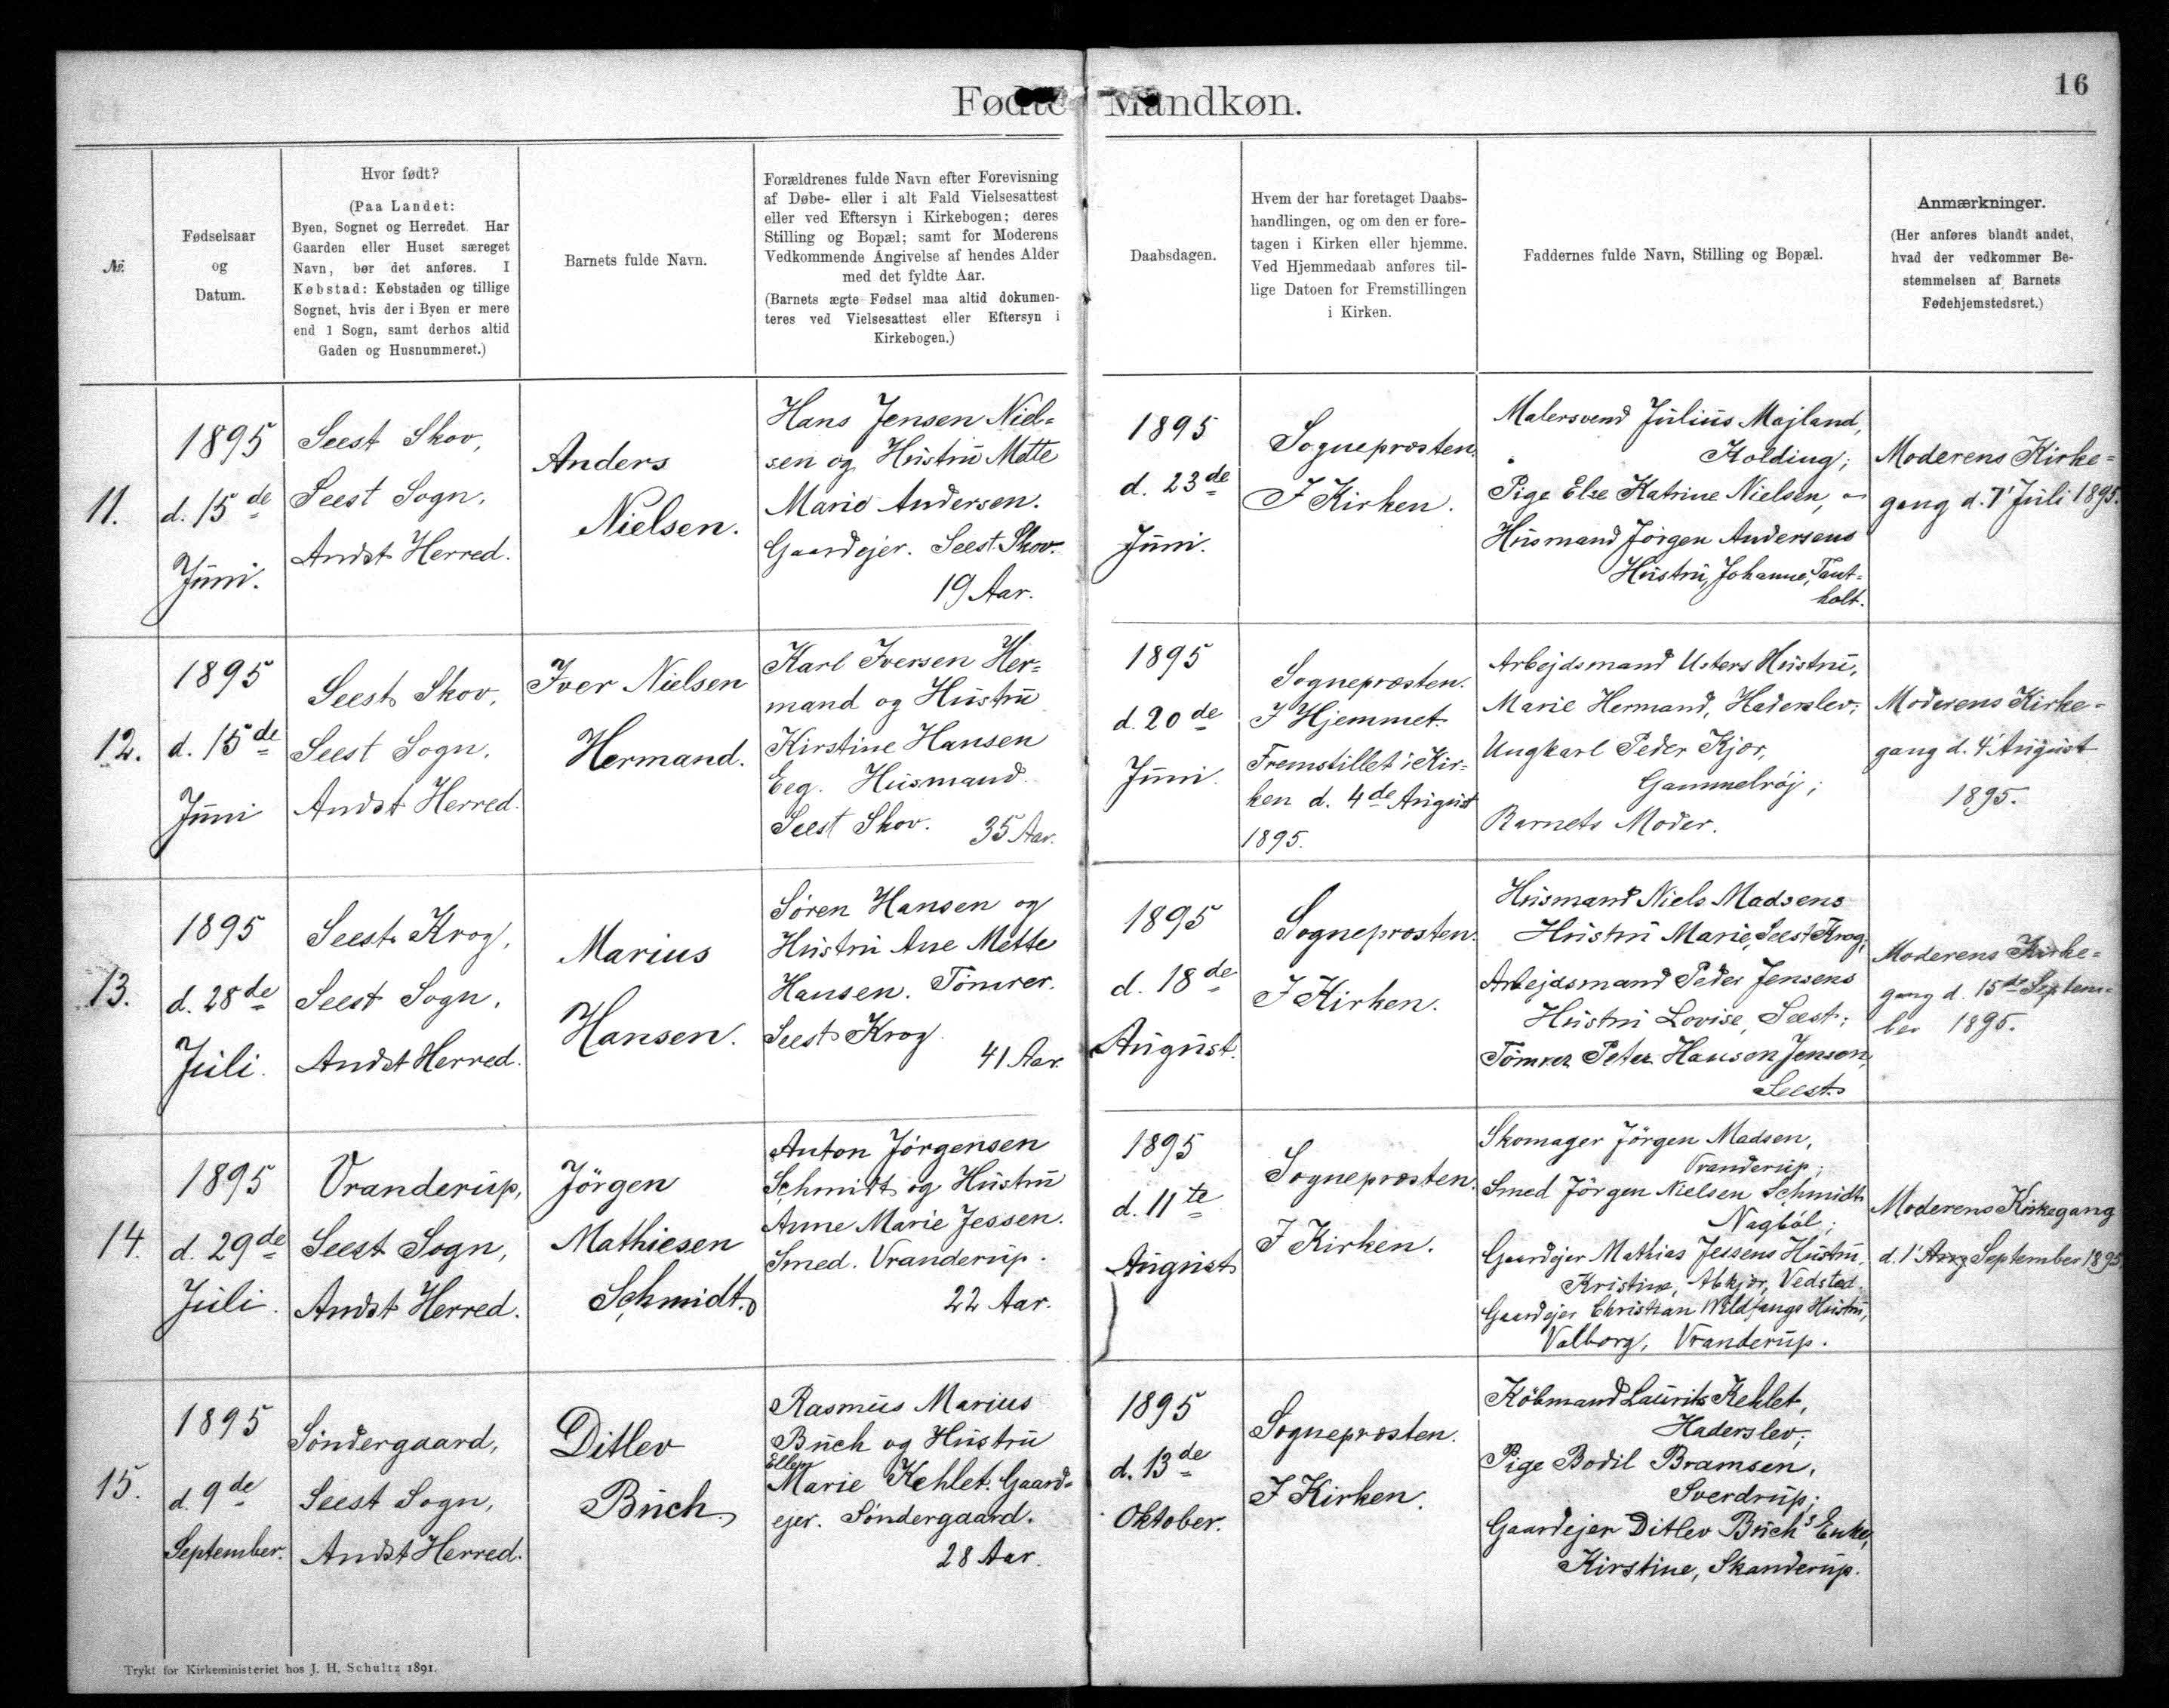 16
Fødte Mandkøn.
№.
Fødselsaar
og
Datum.
Hvor født?
(Paa Landet:
Byen, Sognet og Herredet. Har
Gaarden eller Huset særeget
Navn, bør det anføres. I
Købstad: Købstaden og tillige
Sognet, hvis der i Byen er mere
end 1 Sogn, samt derhos altid
Gaden og Husnummeret.)
Barnets fulde Navn.
Forældrenes fulde Navn efter Forevisning
af Døbe- eller i alt Fald Vielsesattest
eller ved Eftersyn i Kirkebogen; deres
Stilling og Bopæl; samt for Moderens
Vedkommende Angivelse af hendes Alder
med det fyldte Aar.
(Barnets ægte Fødsel maa altid dokumen-
teres ved Vielsesattest eller Eftersyn i
Kirkebogen.)
Daabsdagen.
Hvem der har foretaget Daabs-
handlingen, og om den er fore-
tagen i Kirken eller hjemme.
Ved Hjemmedaab anføres til-
lige Datoen for Fremstillingen
i Kirken.
Faddernes fulde Navn, Stilling og Bopæl.
Anmærkninger.
(Her anføres blandt andet,
hvad der vedkommer Be-
stemmelsen af Barnets
Fødehjemstedsret.)
11.
1895
d. 15de
Juni.
Seest Skov,
Seest Sogn,
Andst Herred.
Anders
Nielsen.
Hans Jensen Niel=
sen og Hustru Mette
Marie Andersen.
Gaardejer. Seest Skov.
19 Aar.
1895
d. 23de
Juni.
Sognepræsten.
I Kirken.
Malersvend Julius Majland,
Kolding;
Pige Else Katrine Nielsen,
Husmand Jörgen Andersens
Hustru, Johanne, Taut=
holt.
Moderens Kirke=
gang d. 7' Juli 1895.
12.
1895
d. 15de
Juni
Seest Skov,
Seest Sogn,
Andst Herred.
Iver Nielsen
Hermand.
Karl Iversen Her=
mand og Hustru
Kirstine Hansen
Eeg. Husmand.
Seest Skov. 35 Aar.
1895
d. 20de
Juni.
Sognepræsten.
I Hjemmet.
Fremstillet i Kir=
ken d. 4de August
1895.
Arbejdsmand Usters Hustru,
Marie Hermand, Haderslev;
Ungkarl Peder Kjær,
Gammelrøj;
Barnets Moder.
Moderens Kirke=
gang d. 4' August
1895.
13.
1895
d. 28de
Juli.
Seest Krog,
Seest Sogn,
Andst Herred.
Marius
Hansen.
Søren Hansen og
Hustru Ane Mette
Hansen. Tömrer.
Seest Krog.
41 Aar.
1895
d. 18de
August.
Sognepræsten.
I Kirken.
Husmand Niels Madsens
Hustru Marie, Seest Krog;
Arbejdsmand Peder Jensens
Hustru Lovise, Seest;
Tömrer Peter Hansen Jensen,
Seest
Moderens Kirke=
gang d. 15de Septem=
ber 1895.
14.
1895
d. 29de
Juli.
Vranderup,
Seest Sogn,
Andst Herred.
Jörgen
Mathiesen
Schmidt.
Anton Jörgensen
Schmidt og Hustru
Anne Marie Jessen.
Smed. Vranderup.
22 Aar.
1895
d. 11te
August
Sognepræsten.
I Kirken.
Skomager Jörgen Madsen,
Vranderup;
Smed Jörgen Nielsen Schmidt
Nagböl;
Gaardejer Mathias Jessens Hustru,
Kristine, Abkjær, Vedsted.
Gaardejer Christian Wildfangs Hustru,
Valborg, Vranderup.
Moderens Kirkegang
d. 1' Aug September 1895
15.
1895
d. 9de
September.
Söndergaard,
Seest Sogn,
Andst Herred.
Ditlev
Buch.
Rasmus Marius
Buch og Hustru
Ellen
Marie Kehlet. Gaard=
ejer. Söndergaard.
28 Aar.
1895
d. 13de
Oktober.
Sognepræsten.
I Kirken.
Köbmand Laurits Kehlet,
Haderslev;
Pige Bodil Bramsen,
Sverdrup;
Gaardejer Ditlev Buch's Enke,
Kirstine, Skanderup.
Trykt for Kirkeministeriet hos J. H. Schultz 1891.